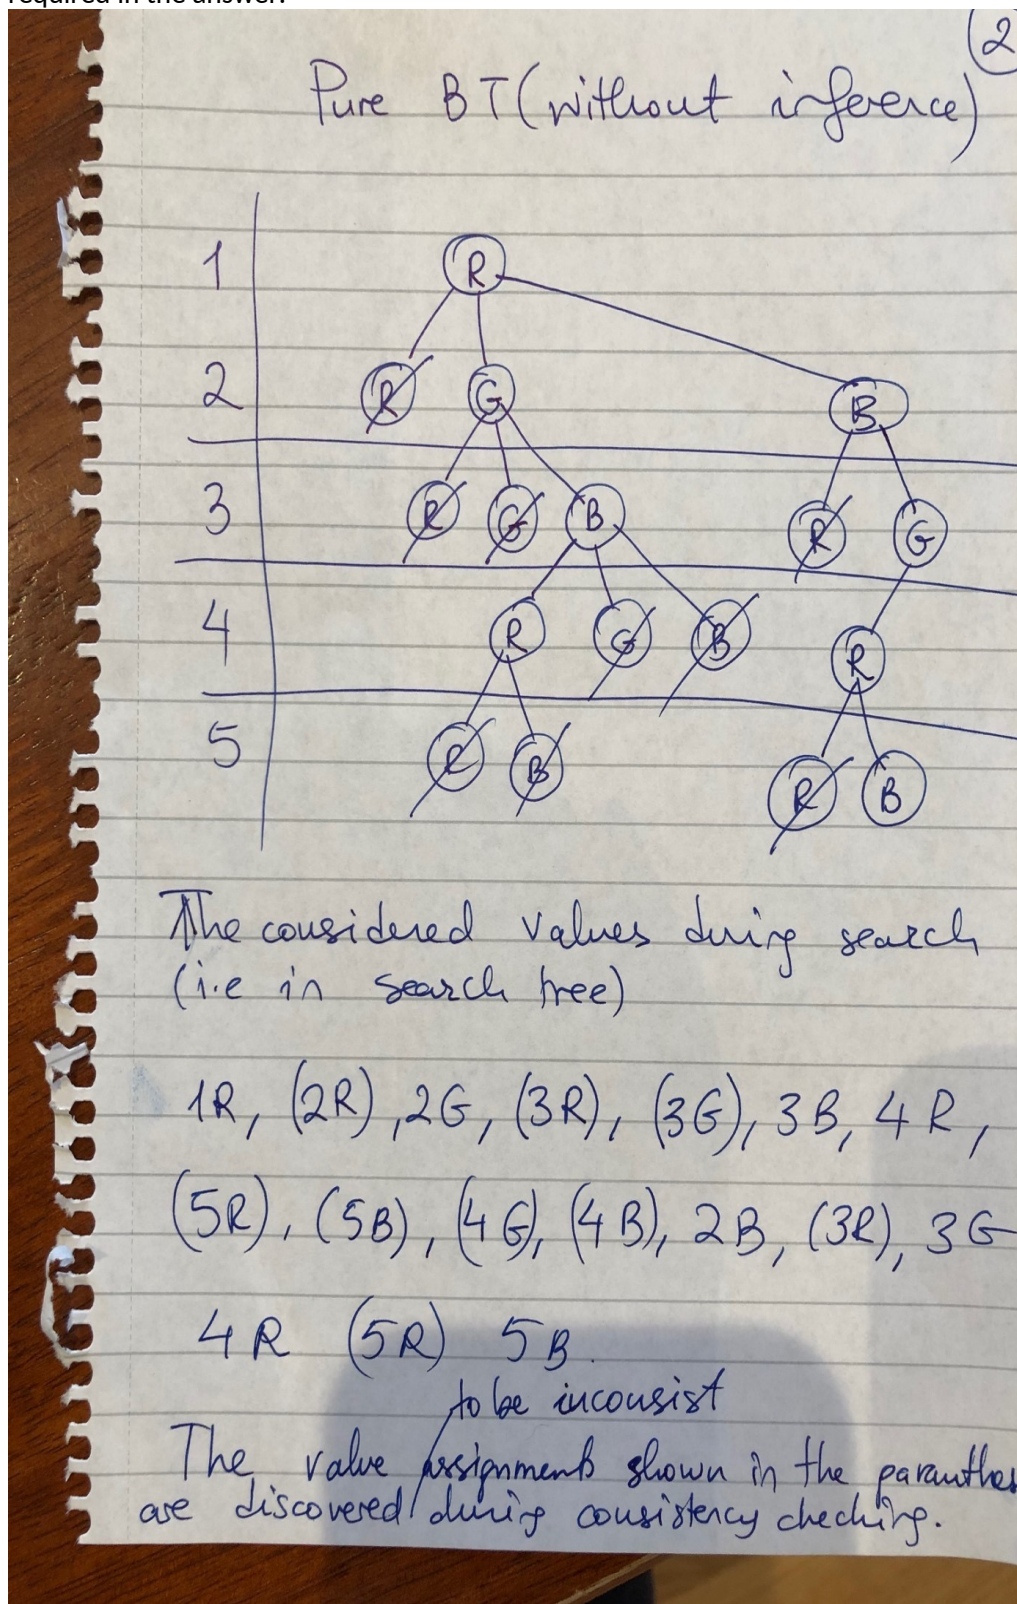 required in the answer.
2
Pure BT (without inference)
1 R
2 R G B
3 R G B R G
4 R G B R
5 R B R B
The considered values during search
(i.e in search tree)
1R, (2R), 2G, (3R), (3G), 3B, 4R,
(5R), (5B), (4G), (4B), 2B, (3R), 3G
4R (5R) 5B.
to be inconsist
The value assignments shown in the paranthes
are discovered during consistency checking.